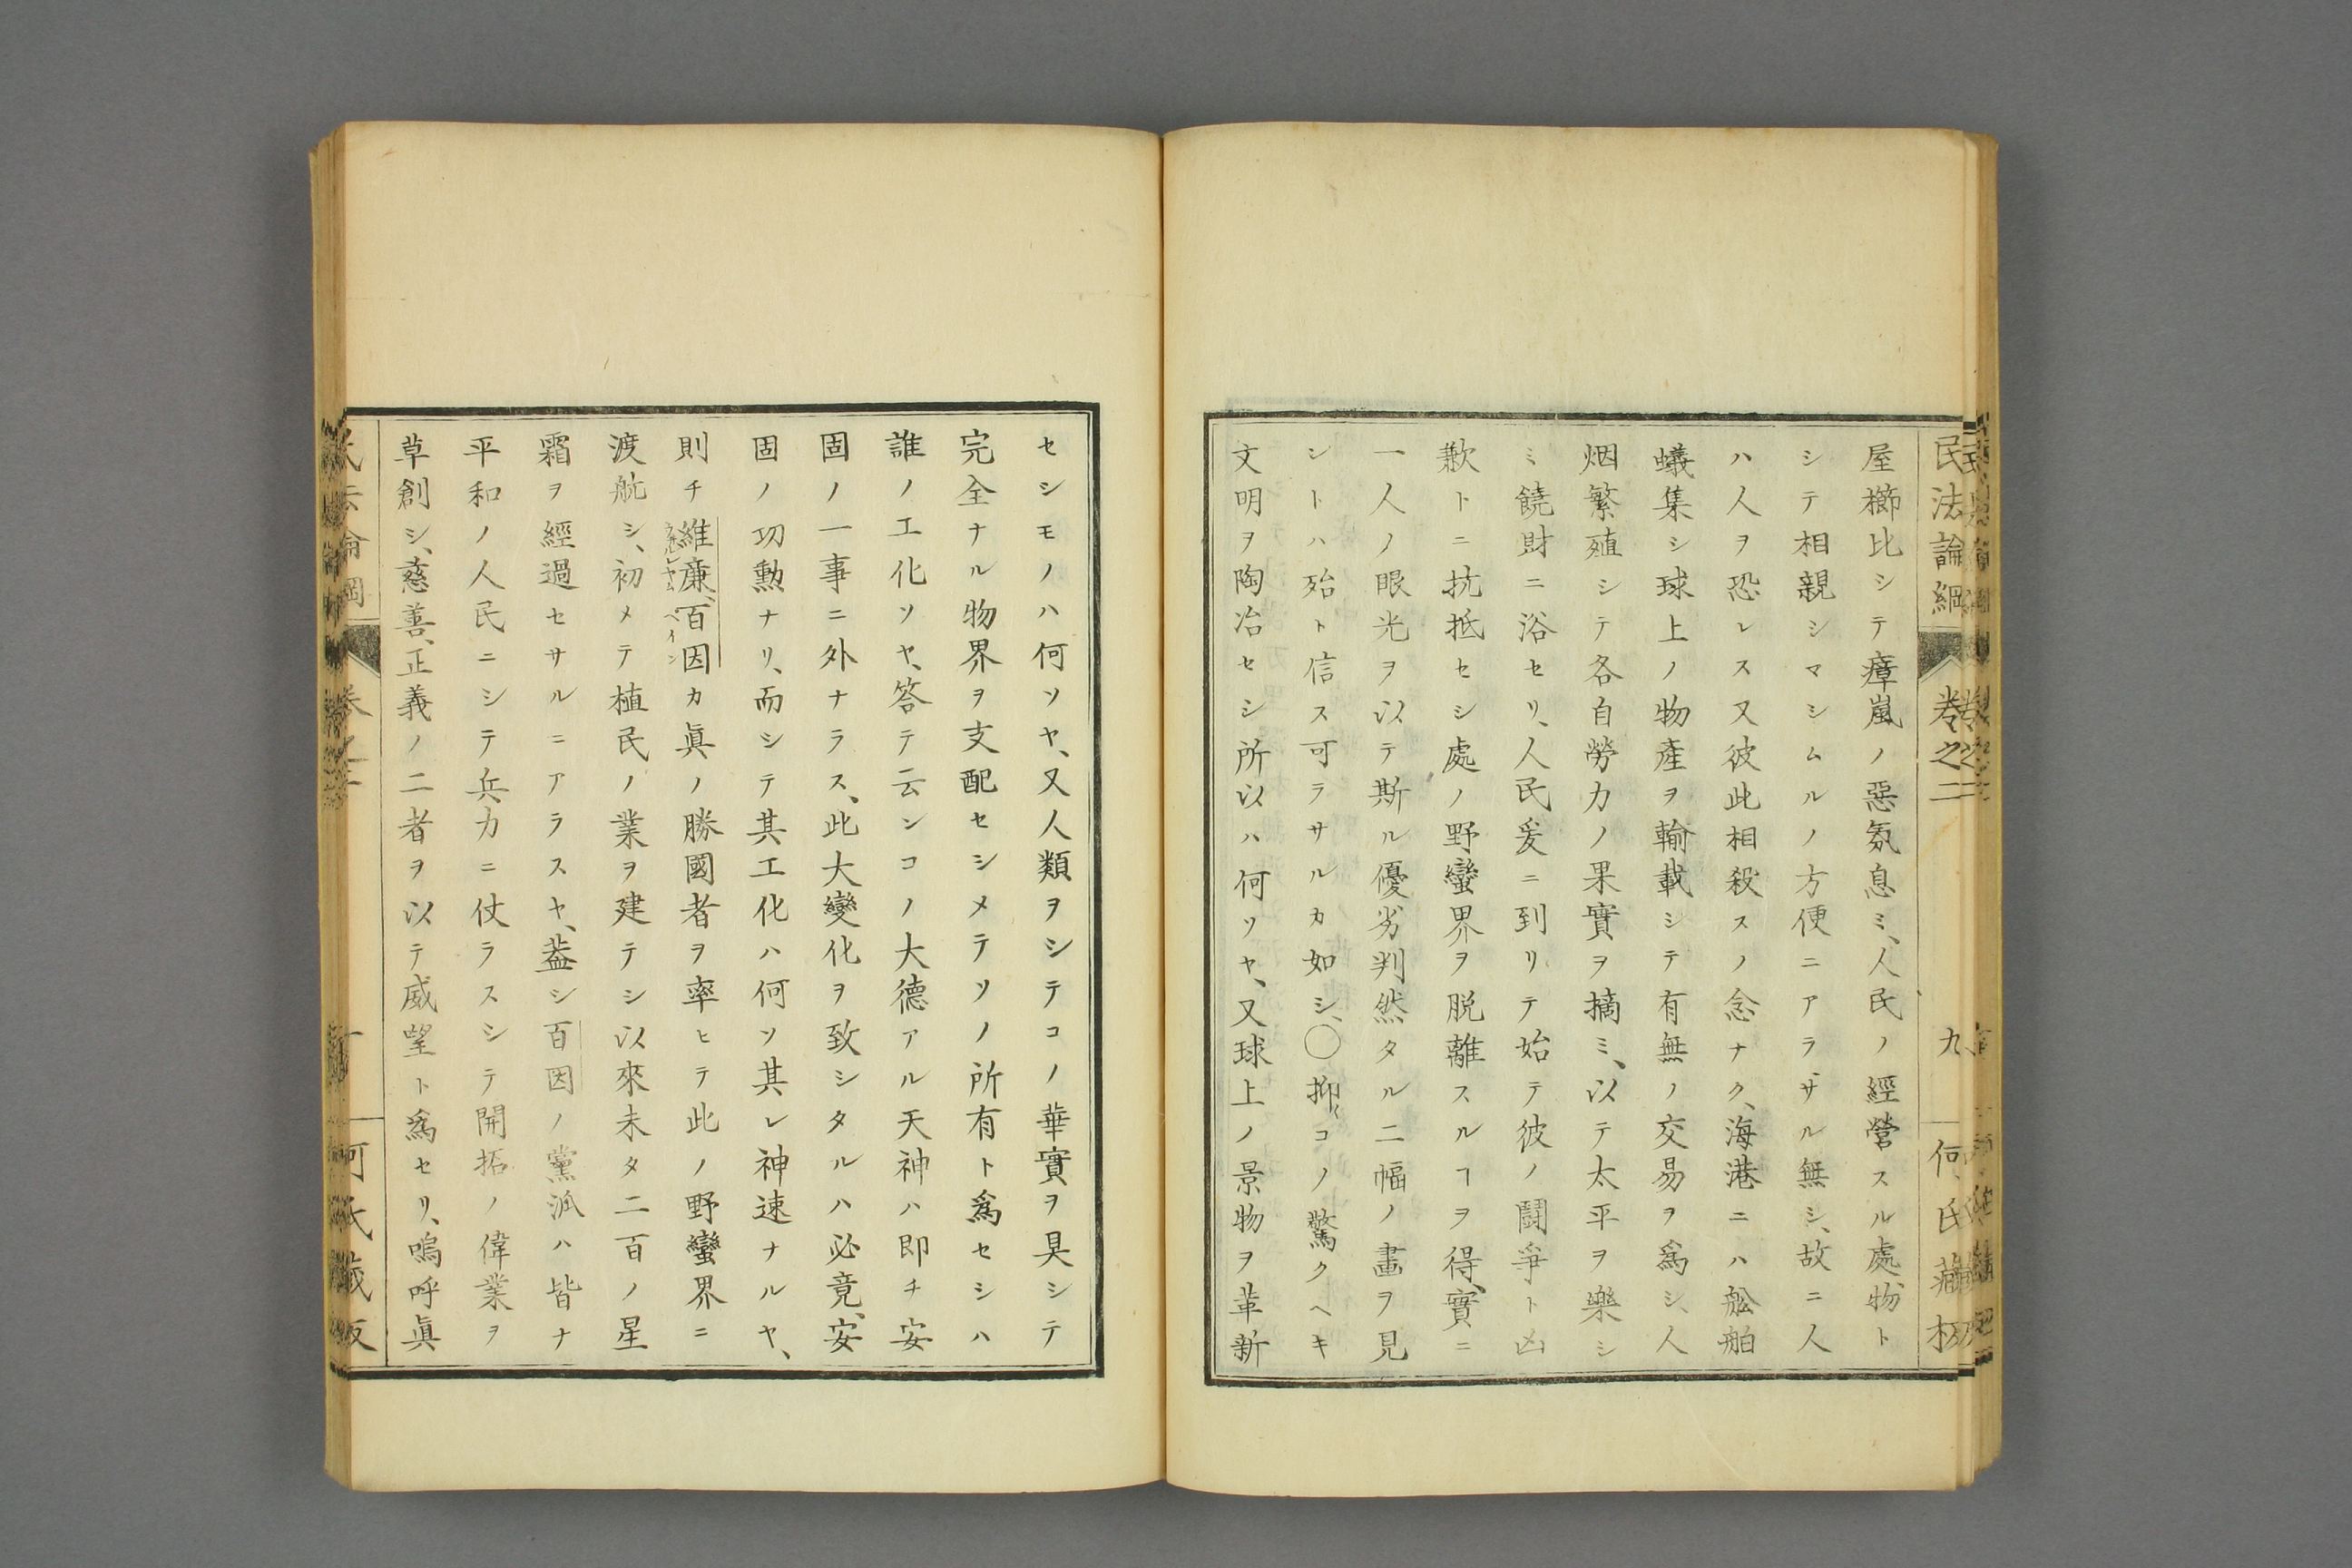 民法論綱
卷之二
九
何氏藏板
屋櫛比シテ瘴嵐ノ惡氛息ミ、人民ノ經營スル處物ト
シテ相親シマシムルノ方便ニアラザル無シ、故ニ人
ハ人ヲ恐レス又彼此相殺スノ念ナク、海港ニハ舩舶
蟻集シ球上ノ物產ヲ輸載シテ有無ノ交易ヲ爲シ、人
烟繁殖シテ各自勞力ノ果實ヲ摘ミ、以テ太平ヲ樂シ
ミ饒財ニ浴セリ、人民爰ニ到リテ始テ彼ノ鬪爭ト凶
歉トニ抗抵セシ處ノ野蠻界ヲ脫離スルヿヲ得、實ニ
一人ノ眼光ヲ以テ斯ル優劣判然タル二幅ノ畫ヲ見
シトハ殆ト信ス可ラサルカ如シ、〇抑々コノ驚クヘキ
文明ヲ陶冶セシ所以ハ何ソヤ、又球上ノ景物ヲ革新
セシモノハ何ソヤ、又人類ヲシテコノ華實ヲ具シテ
完全ナル物界ヲ支配セシメテソノ所有ト爲セシハ
誰ノ工化ソヤ、答テ云ンコノ大德アル天神ハ即チ安
固ノ一事ニ外ナラス、此大變化ヲ致シタルハ必竟、安
固ノ功勳ナリ、而シテ其工化ハ何ソ其レ神速ナルヤ、
則チ維廉、百因カ眞ノ勝國者ヲ率ヒテ此ノ野蠻界ニ
渡航シ、初メテ植民ノ業ヲ建テシ以來未タ二百ノ星
霜ヲ經過セサルニアラスヤ、蓋シ百因ノ黨派ハ皆ナ
平和ノ人民ニシテ兵力ニ仗ラスシテ開拓ノ偉業ヲ
草創シ、慈善、正義ノ二者ヲ以テ威望ト爲セリ、嗚呼眞